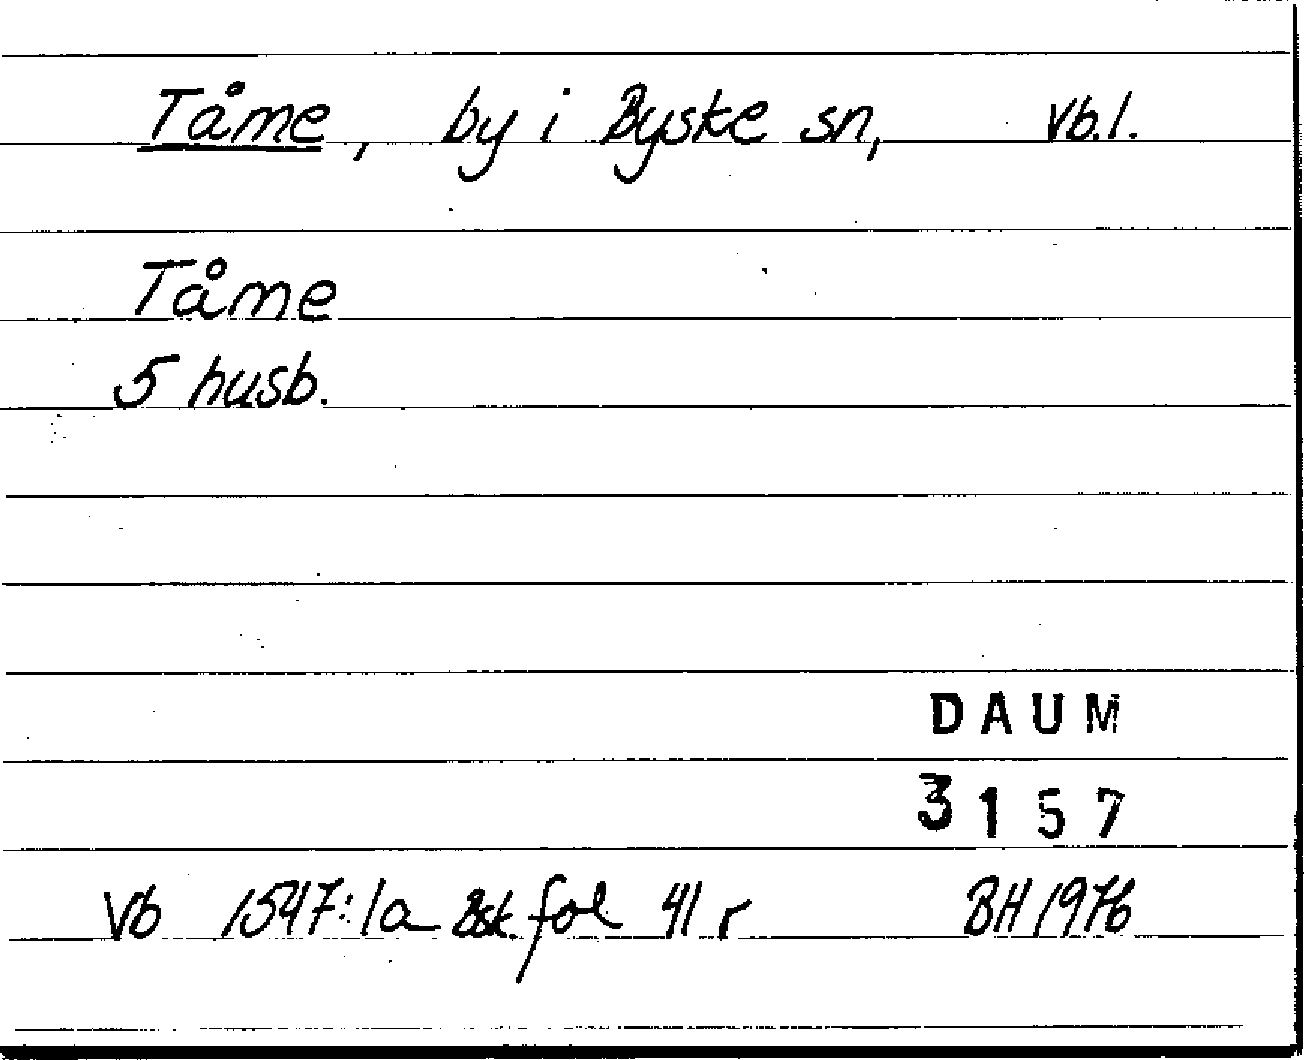 Tåme, by i Byske sn, Vb.l.
Tåme
5 husb.
DAUM
3157
Vb 1547:1a Bsk. fol 41 r BH 1976